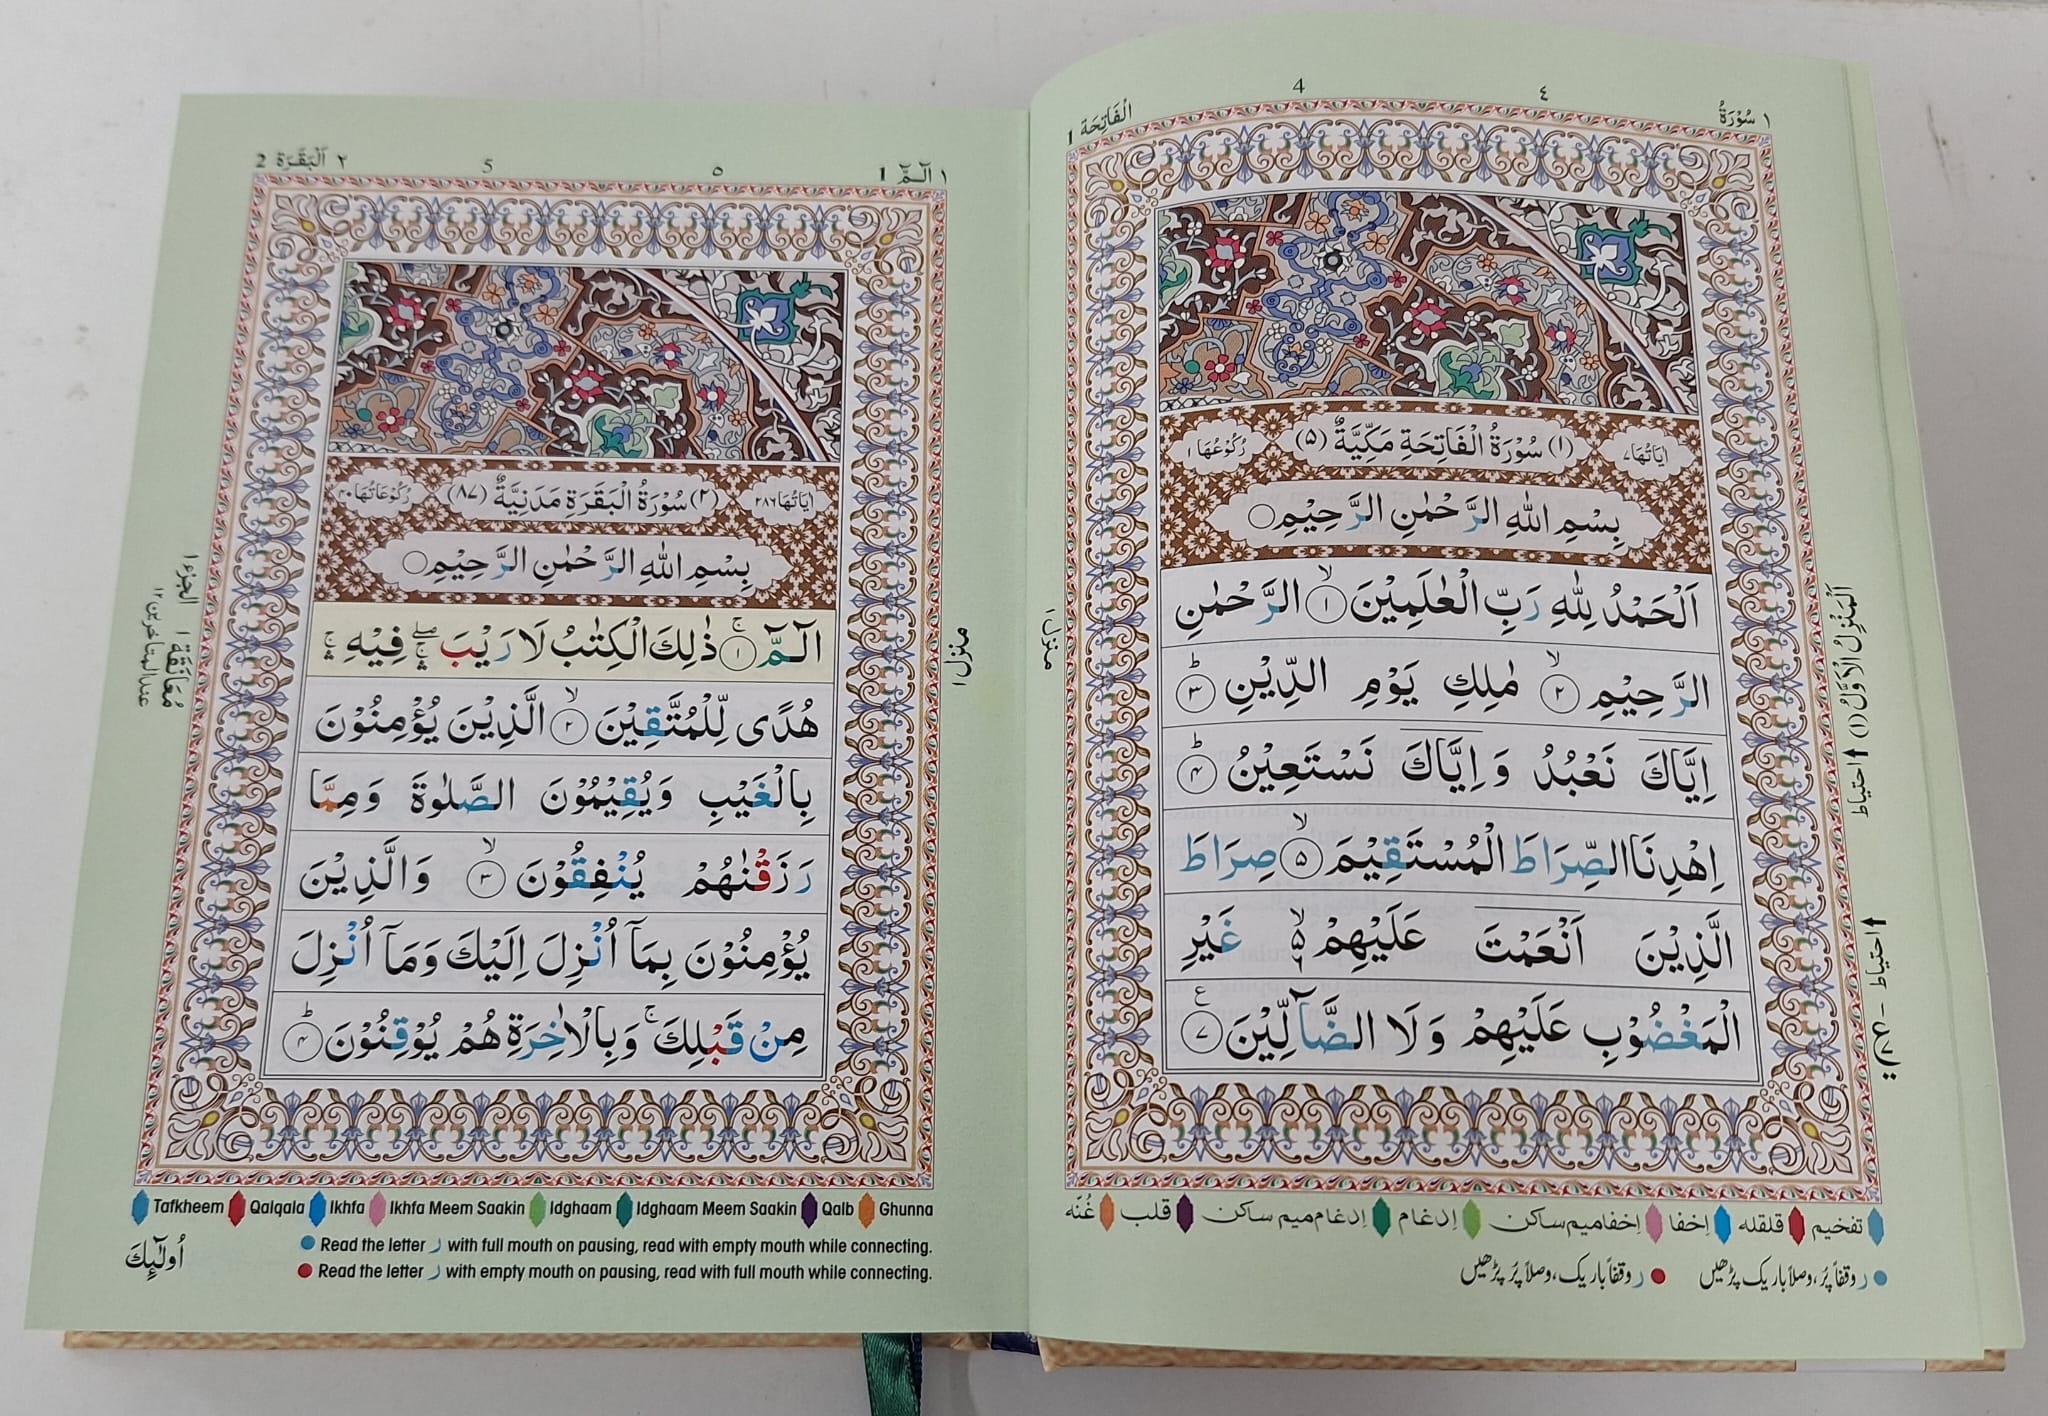 ١ سُوْرَةُ
٤
4
الْفَاتِحَة 1
اٰيَاتُهَا ٧
(١) سُوْرَةُ الْفَاتِحَةِ مَكِّيَّةٌ (٥)
رُكُوْعُهَا ١
بِسْمِ اللّٰهِ الرَّحْمٰنِ الرَّحِيْمِ
اَلْحَمْدُ لِلّٰهِ رَبِّ الْعٰلَمِيْنَ ۙ ١ الرَّحْمٰنِ
الرَّحِيْمِ ۙ ٢ مٰلِكِ يَوْمِ الدِّيْنِ ؕ ٣
اِيَّاكَ نَعْبُدُ وَاِيَّاكَ نَسْتَعِيْنُ ؕ ٤
اِهْدِنَا الصِّرَاطَ الْمُسْتَقِيْمَ ۙ ٥ صِرَاطَ
الَّذِيْنَ اَنْعَمْتَ عَلَيْهِمْ ۙ ۵ غَيْرِ
الْمَغْضُوْبِ عَلَيْهِمْ وَلَا الضَّآلِّيْنَ ع ٧
منزل ١
اَلْمَنْزِلُ الْاَوَّلُ (١)
احتیاط
احتیاط
تفخیم قلقلہ اِخفا اِخفا میم ساکن اِدغام اِدغام میم ساکن قلب غُنّہ
ر وقفاً پُر، وصلاً باریک پڑھیں ر وقفاً باریک، وصلاً پُر پڑھیں
١ الٓمّٓ 1
٥
5
٢ اَلْبَقَرَة 2
اٰيَاتُهَا ٢٨٦
(٢) سُوْرَةُ الْبَقَرَةِ مَدَنِيَّةٌ (٨٧)
رُكُوْعَاتُهَا ٤٠
بِسْمِ اللّٰهِ الرَّحْمٰنِ الرَّحِيْمِ
الٓمّٓ ۚ ١ ذٰلِكَ الْكِتٰبُ لَا رَيْبَ ۛۖ فِيْهِ ۛ
هُدًى لِّلْمُتَّقِيْنَ ۙ ٢ الَّذِيْنَ يُؤْمِنُوْنَ
بِالْغَيْبِ وَيُقِيْمُوْنَ الصَّلٰوةَ وَمِمَّا
رَزَقْنٰهُمْ يُنْفِقُوْنَ ۙ ٣ وَالَّذِيْنَ
يُؤْمِنُوْنَ بِمَآ اُنْزِلَ اِلَيْكَ وَمَآ اُنْزِلَ
مِنْ قَبْلِكَ ۚ وَبِالْاٰخِرَةِ هُمْ يُوْقِنُوْنَ ؕ ٤
منزل ١
الجزء ١
مُعَانَقَة ١
عند المتأخرين ١٢
Tafkheem Qalqala Ikhfa Ikhfa Meem Saakin Idghaam Idghaam Meem Saakin Qalb Ghunna
Read the letter ر with full mouth on pausing, read with empty mouth while connecting.
Read the letter ر with empty mouth on pausing, read with full mouth while connecting.
اُولٰٓئِكَ